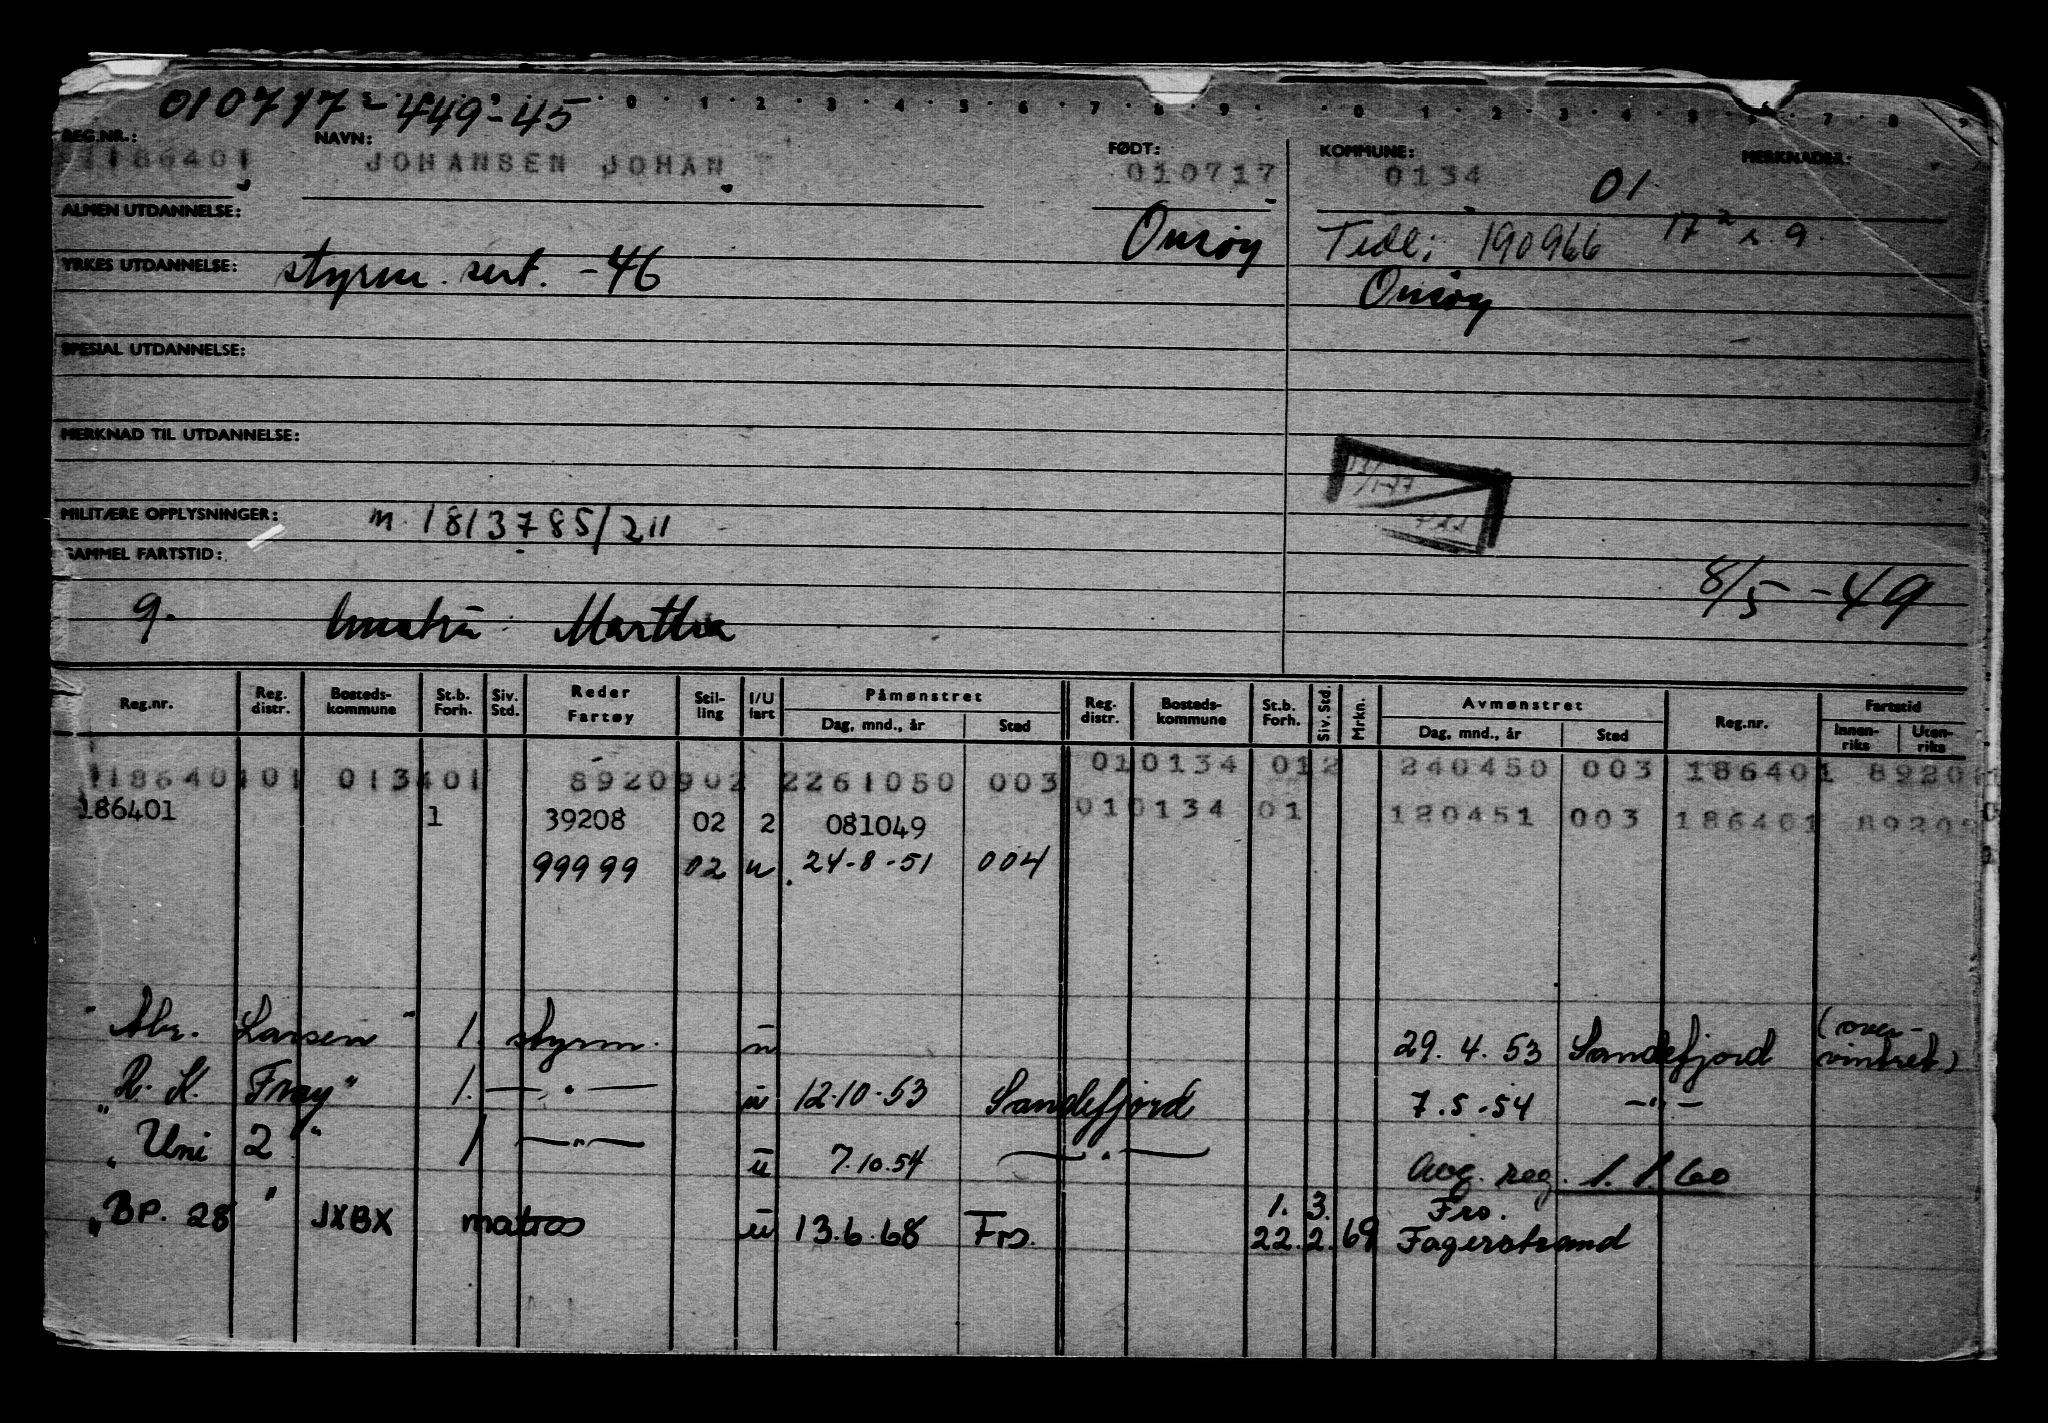 010717-449-45
0 1 2 3 4 5 6 7 8 9 0 1 2 3 4 5 6 7 8 9
REG.NR.: NAVN: FØDT: KOMMUNE: MERKNADER:
186401 JOHANSEN JOHAN 010717 0134 01
ALMEN UTDANNELSE: Onsøy Tidl: 190966
YRKES UTDANNELSE: styrm. sert. -46 Onsøy
SPESIAL UTDANNELSE:
MERKNAD TIL UTDANNELSE:
MILITÆRE OPPLYSNINGER: m. 1813785/211
GAMMEL FARTSTID:
8/5 -49
g. hustru: Marthea
Reg.nr. Reg. distr. Bosteds-kommune St.b. Forh. Siv. Std. Reder Fartøy Stil-ling I/U fart Påmønstret Dag, mnd., år Sted Reg. distr. Bosteds-kommune St.b. Forh. Siv. Std. Mrkn. Avmønstret Dag, mnd., år Sted Reg.nr. Fartstid Innen-riks Uten-riks
18640101 013401 8920902 2261050 003 010134 012 240450 003 186401 8920
186401 1 39208 02 2 081049 010134 01 120451 003 186401 8920
99999 02 u 24-8-51 004
"Abr. Larsen" 1. styrm. u 29.4.53 Sandefjord (over-vintret)
"R. K. Fray" 1. —"— u 12.10.53 Sandefjord 7.5.54 —"—
"Uni 2" 1 —"— u 7.10.54 —"— Avg. reg. 1.1.60
"BP. 28" JXBX matros u 13.6.68 Frs. 1. 3. Frs.
22.2.69 Fagerstrand